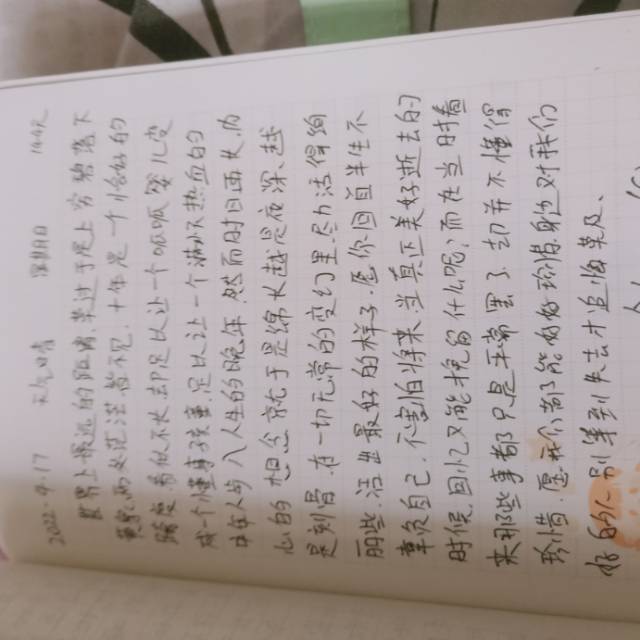 2022.9.17 天气晴 星期日
世界上最远的距离,莫过于爬上
十年是一个恰好的
看似不长却足以让一个呱呱婴儿变
成一个懂事孩童,足以让一个满怀热血的
中年人步入人生的晚年,然而时日
心的想念就于是绵长越是夜深,越
是刻骨,在一切无常的变幻里,尽力活得绚
丽些,活出最好的样子,愿你回首半生不
辜负自己,不害怕将来,当真正美好逝去的
时候,回忆又能挽留什么呢,而在当时看
来那些事都只是平常罢了,却并不懂得
珍惜,愿我们都能好好珍惜身边对我们
好的人,别等到失去才追悔莫及。